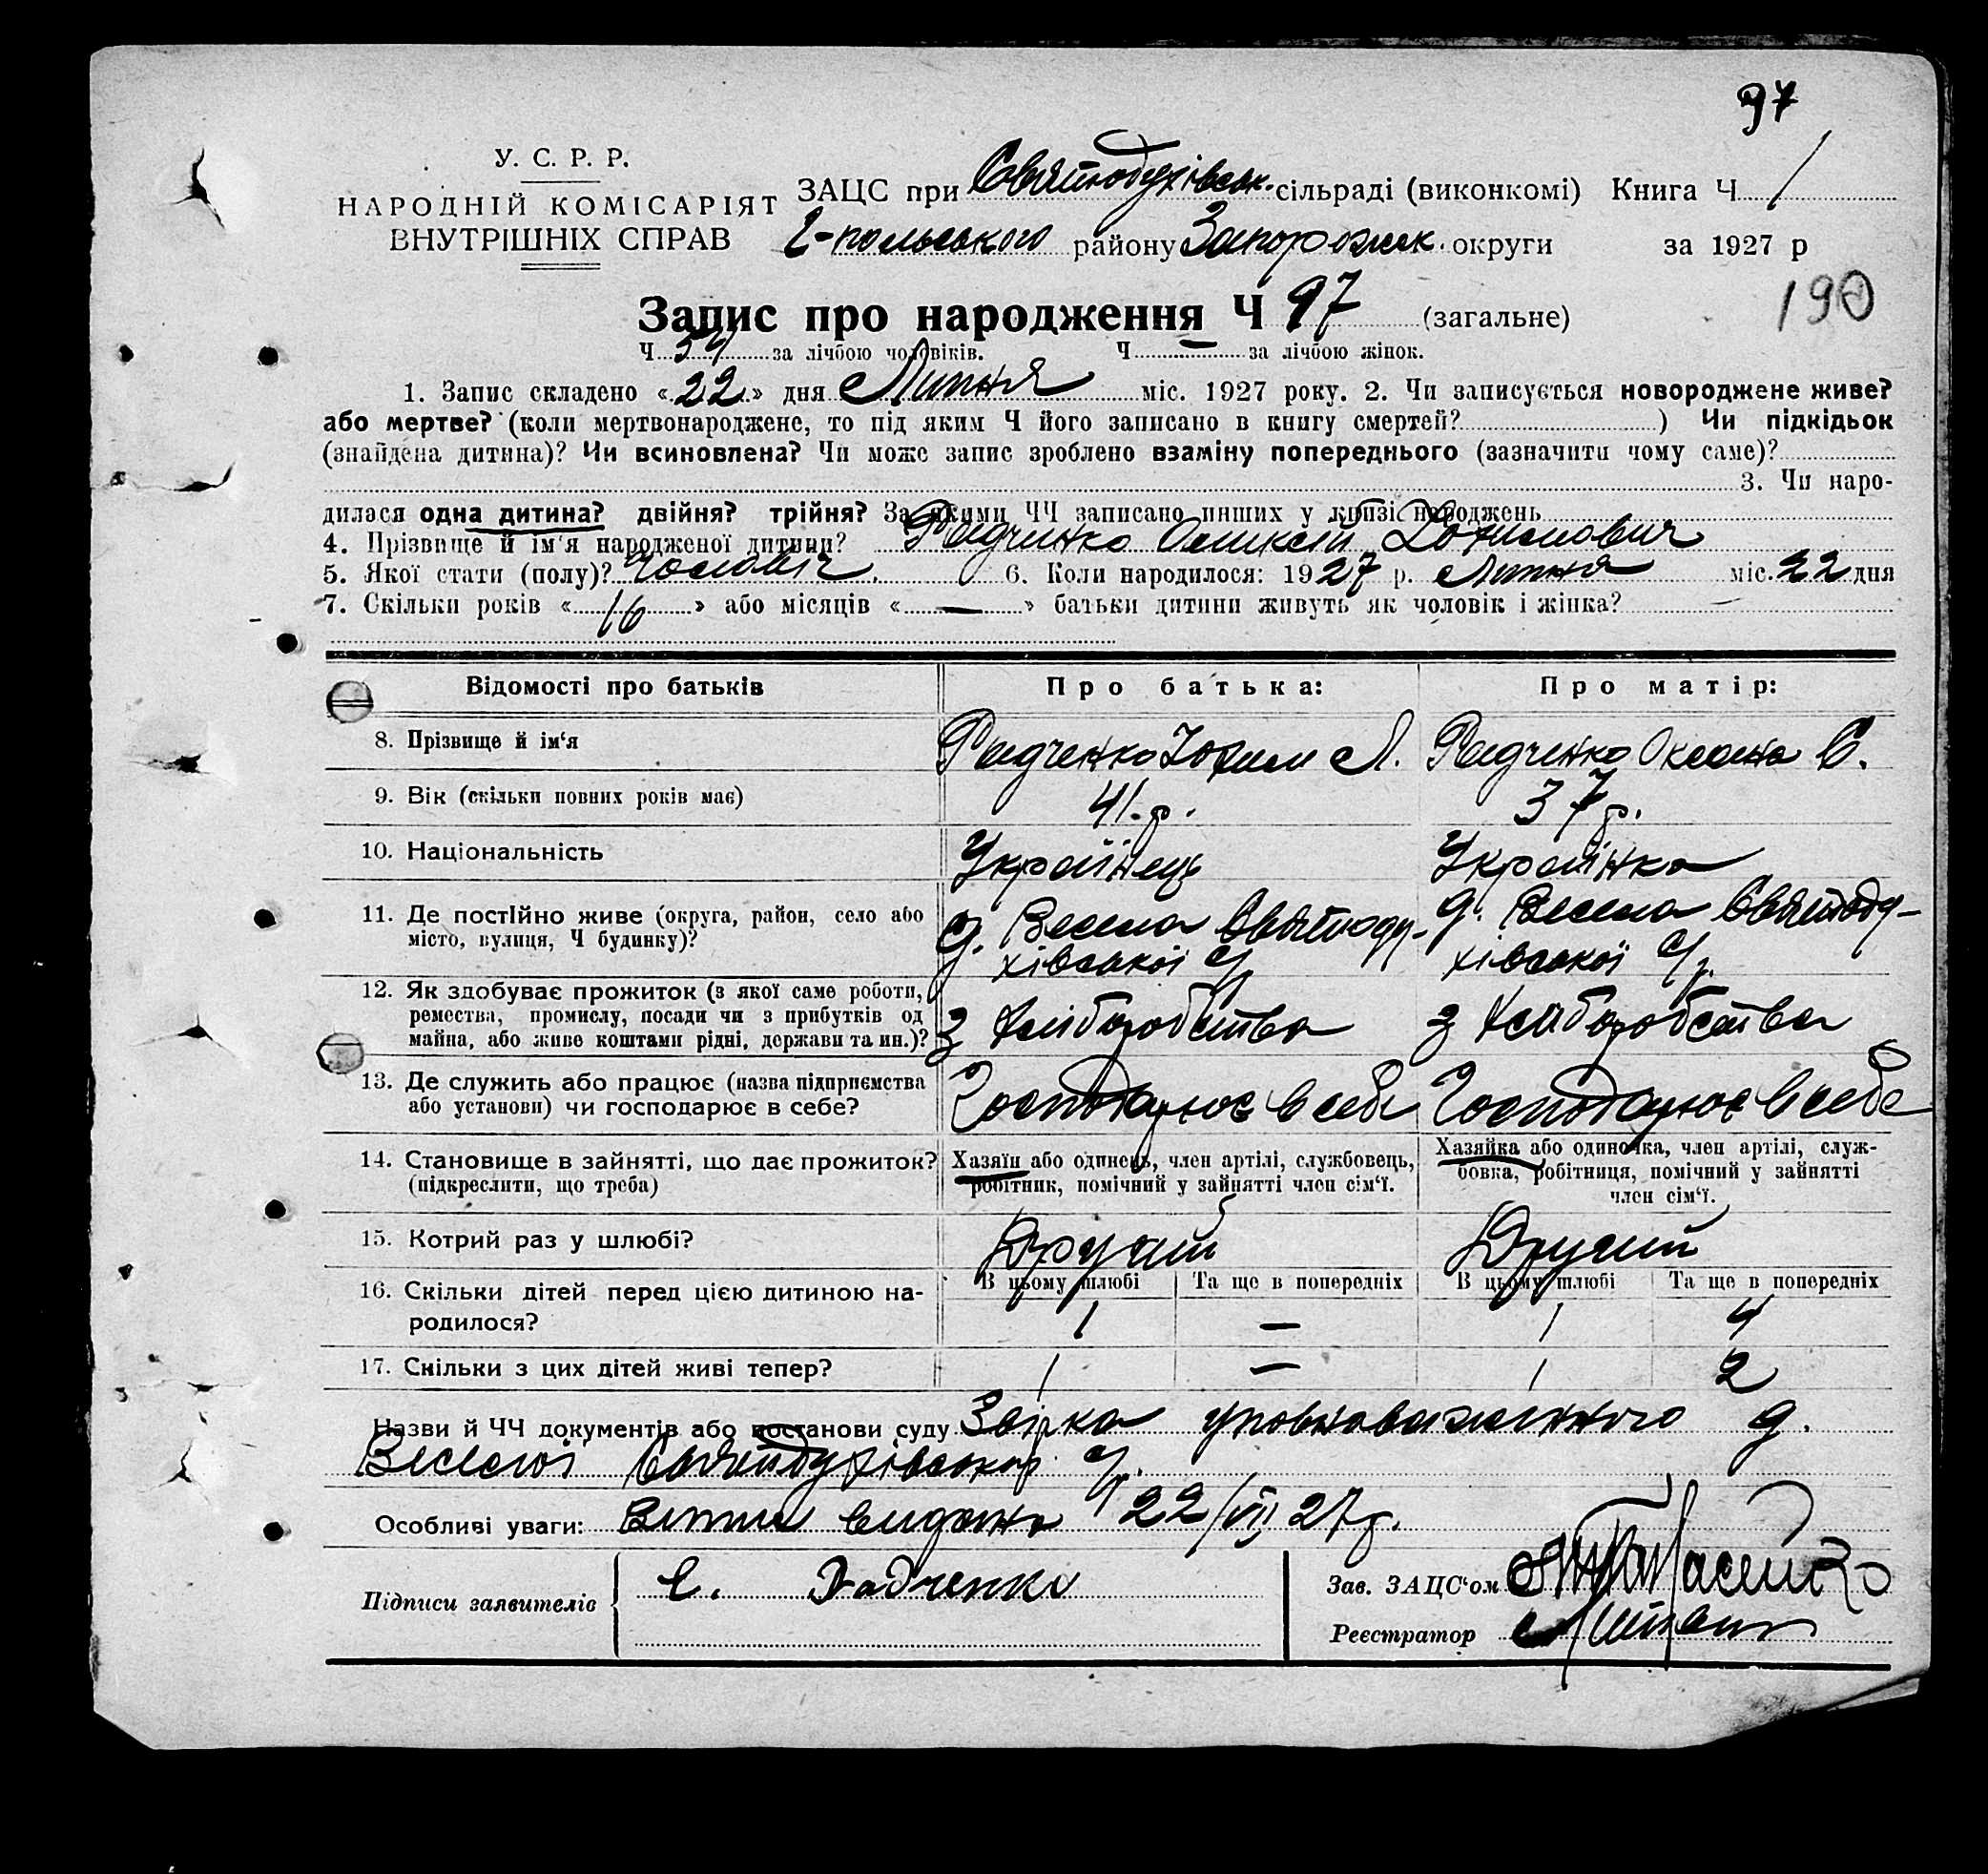 97
У. С. Р. Р.
НАРОДНІЙ КОМІСАРІЯТ
ВНУТРІШНІХ СПРАВ
ЗАЦС при Святодухівськ. сільраді (виконкомі) Книга Ч 1
району Запорожськ. округи за 1927 р
190
Запис про народження Ч 97 (загальне)
Ч 54 за лічбою чоловіків. Ч — за лічбою жінок.
1. Запис складено «22» дня Липня міс. 1927 року. 2. Чи записується новороджене живе?
або мертве? (коли мертвонароджене, то під яким Ч його записано в книгу смертей? ) Чи підкідьок
(знайдена дитина)? Чи всиновлена? Чи може запис зроблено взаміну попереднього (зазначити чому саме)?
3. Чи наро-
дилася одна дитина? двійня? трійня? За якими ЧЧ записано инших у книзі народжень
4. Прізвище й ім'я народженої дитини? Радченко Олексій
5. Якої стати (полу)? Чоловіч. 6. Коли народилося: 1927 р. Липня міс. 22 дня
7. Скільки років «16» або місяців «—» батьки дитини живуть як чоловік і жінка? —
Відомості про батьків Про батька: Про матір:
8. Прізвище й ім'я Радченко Юхим Л. Радченко Оксана С.
9. Вік (скільки повних років має) 41 р. 37 р.
10. Національність Українець Українка
11. Де постІйно живе (округа, район, село або місто, вулиця, Ч будинку)? д. Весела Святоду-хівської с/р д. Весела Святоду-хівської с/р.
12. Як здобуває прожиток (з якої саме роботи, ремества, промислу, посади чи з прибутків од майна, або живе коштами рідні, держави та ин.)? З Хліборобства З Хліборобства
13. Де служить або працює (назва підприємства або установи) чи господарює в себе? Господарює в себе Господарює в себе
14. Становище в зайнятті, що дає прожиток? (підкреслити, що треба) Хазяїн або одинець, член артілі, службовець, робітник, помічний у зайнятті член сім'ї. Хазяйка або одиночка, член артілі, служ-бовка, робітниця, помічний у зайнятті член сім'ї.
15. Котрий раз у шлюбі? Другий Другий
В цьому шлюбі Та ще в попередніх В цьому шлюбі Та ще в попередніх
16. Скільки дітей перед цією дитиною на-родилося? 1 — 1 4
17. Скільки з цих дітей живі тепер? 1 — 1 2
Назви й ЧЧ документів або постанови суду Звірка уповноваженного д.
Веселої с/р.
Особливі уваги: Витяг видано 22/VII 27 р.
Підписи заявителів Є. Радченко
Зав. ЗАЦС'ом
Реєстратор